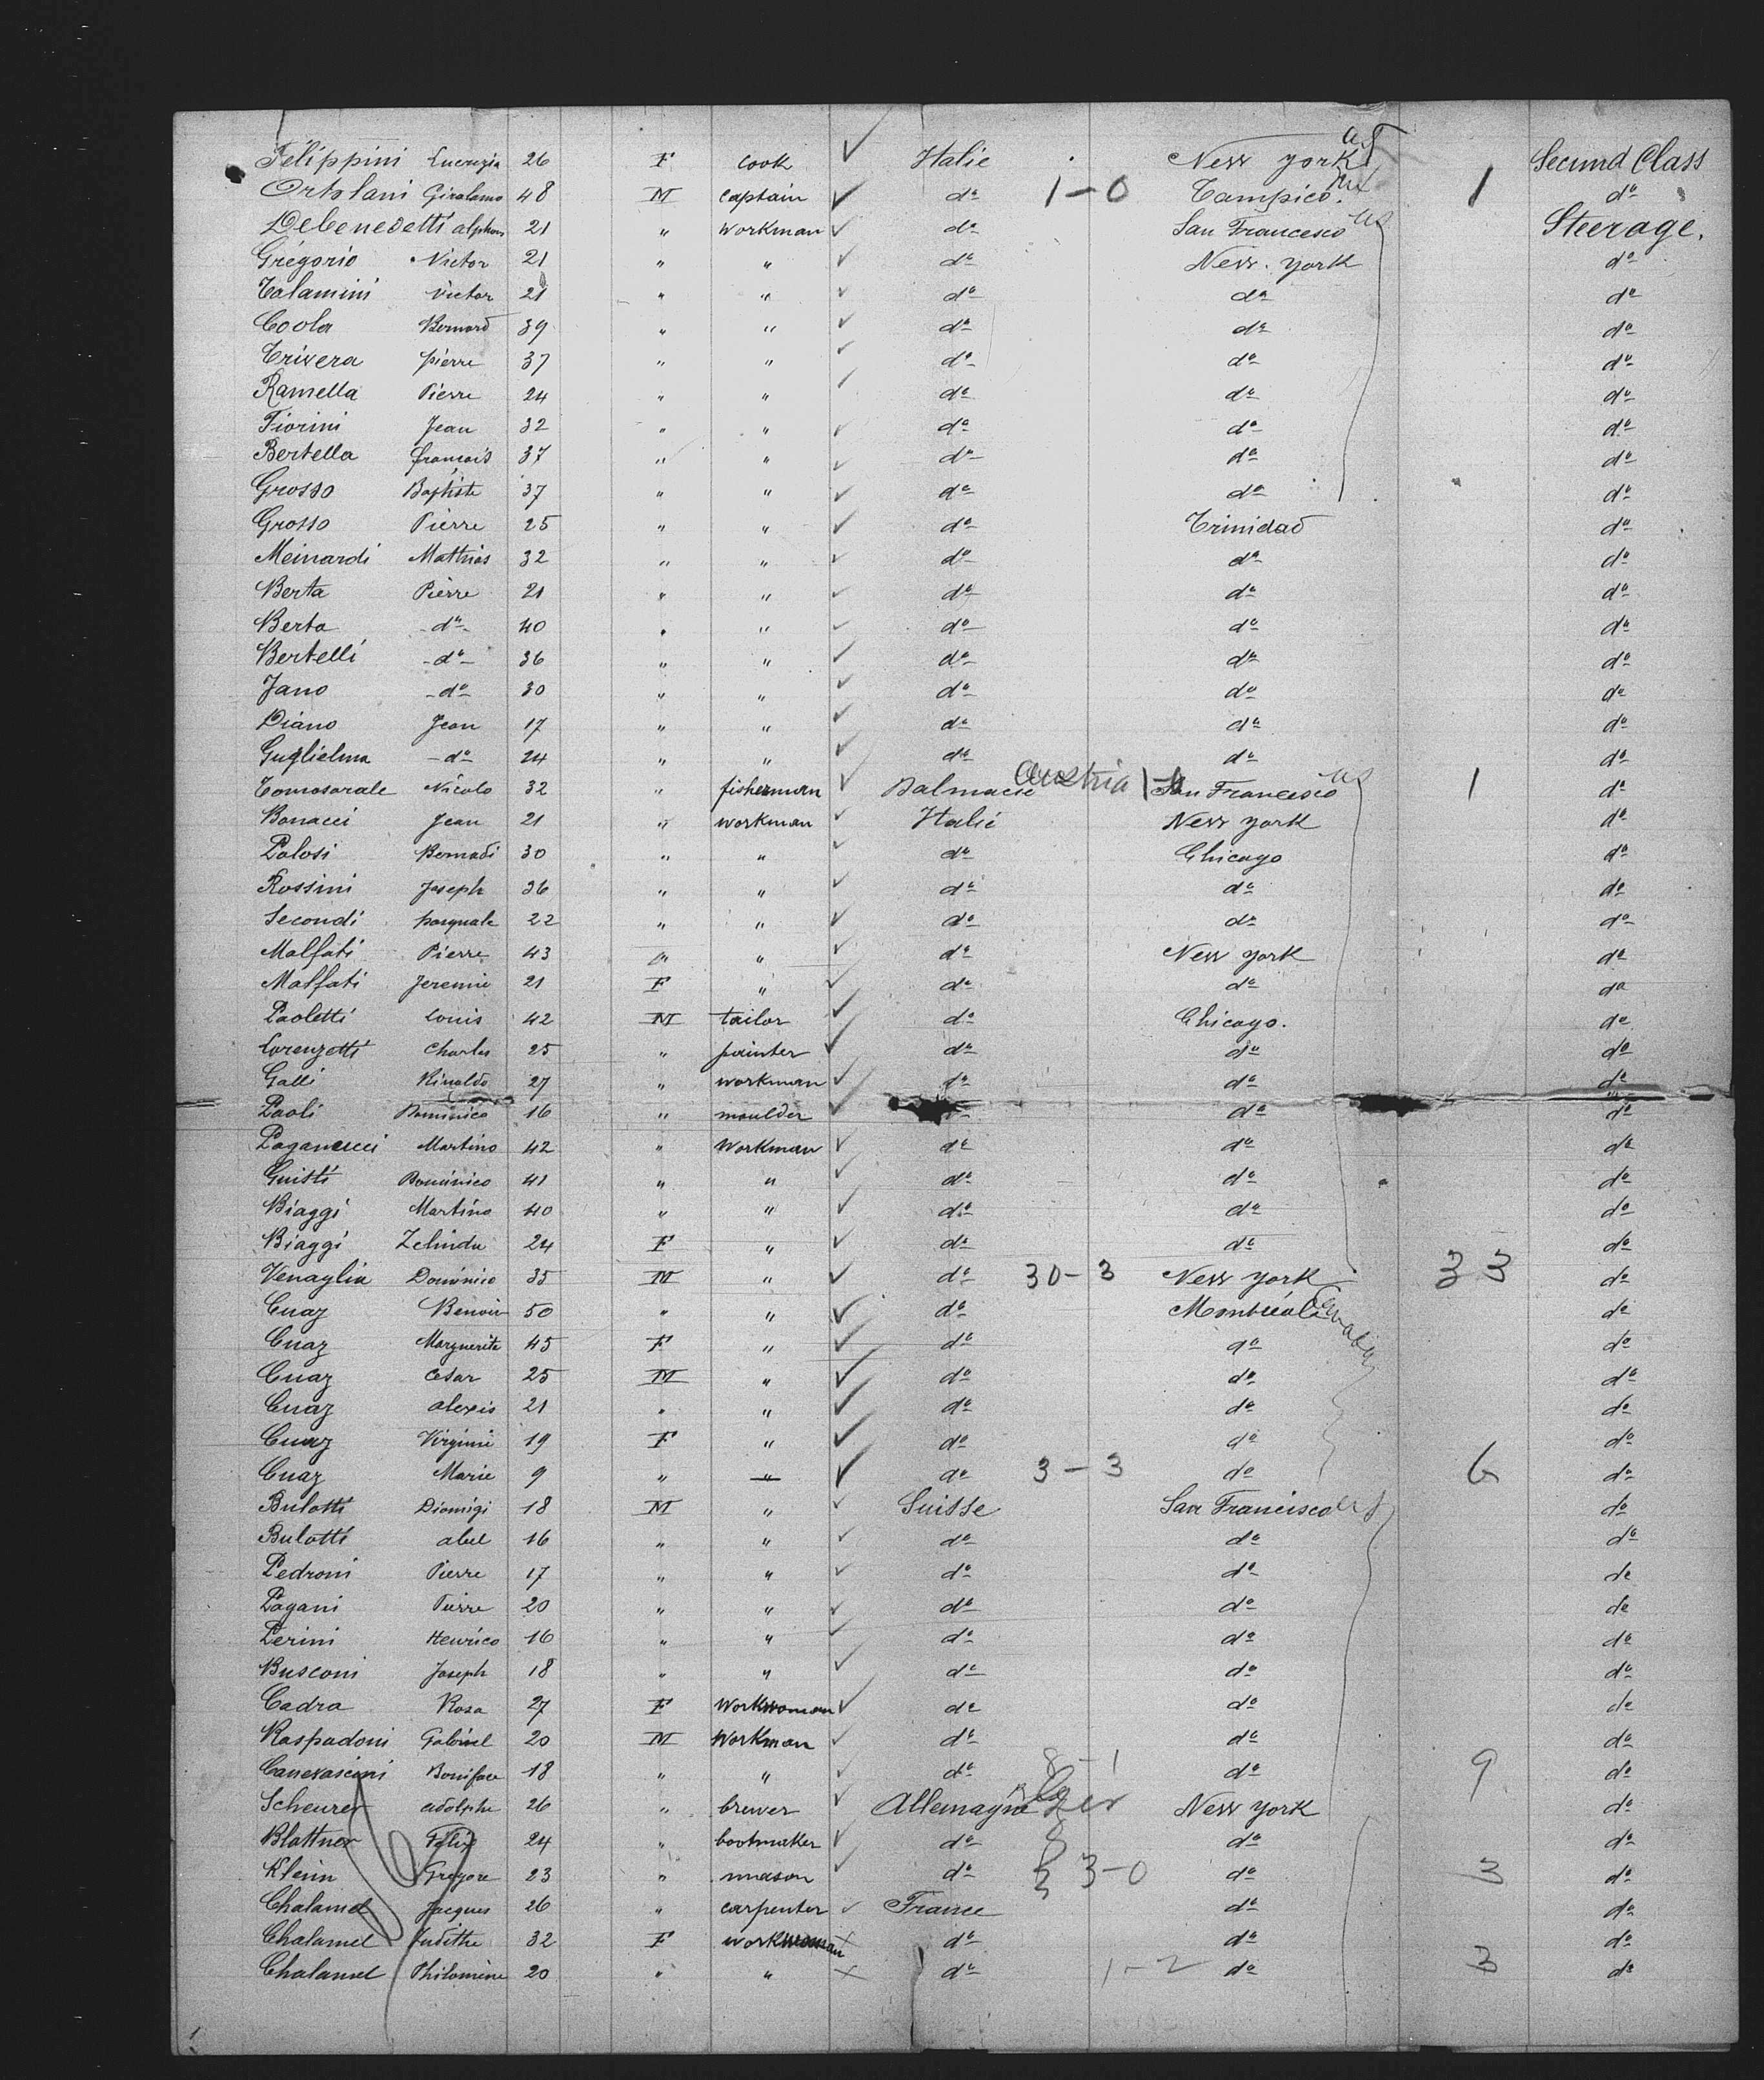 Filippini Lucrezia 26 F cook ✓ Italie New York US 1 Second Class
Ortolani Girolamo 48 M captain ✓ do 1-0 Tampico. Mex 1 do
Debenedetti alphons 21 " workman ✓ do San Francesco US Steerage.
Grégorio Victor 21 " " ✓ do New. york do
Talamini Victor 21 " " ✓ do do do
Coola Bernard 39 " " ✓ do do do
Trivera pierre 37 " " ✓ do do do
Ramella Pierre 24 " " ✓ do do do
Fiorini Jean 32 " " ✓ do do do
Bertella francois 37 " " ✓ do do do
Grosso Baptiste 37 " " ✓ do do do
Grosso Pierre 25 " " ✓ do Trinidad do
Meinardi Mathias 32 " " ✓ do do do
Berta Pierre 21 " " ✓ do do do
Berta do 40 " " ✓ do do do
Bertelli do 36 " " ✓ do do do
Jano do 30 " " ✓ do do do
Diano Jean 17 " " ✓ do do do
Guglielma do 24 " " ✓ do do do
Tomosorale Nicolo 32 " fisherman ✓ Dalmacie Austria San Francisco US 1 do
Bonacci Jean 21 " workman ✓ Italie New york do
Polosi Bernadi 30 " " ✓ do Chicago do
Rossini Joseph 36 " " ✓ do do do
Secondi pasquale 22 " " ✓ do do do
Malfati Pierre 43 " " ✓ do New york do
Malfati Jeremie 21 F " ✓ do do do
Paoletti Louis 42 M tailor ✓ do Chicago. do
Lorenzetti Charles 25 " painter ✓ do do do
Galli Rinaldo 27 " workman ✓ do do do
Paoli Dominico 16 " moulder ✓ do do do
Paganucci Martino 42 " Workman ✓ do do do
Guisti Dominico 41 " " ✓ do do do
Biaggi Martino 40 " " ✓ do do do
Biaggi Zelinda 24 F " ✓ do do do
Venaglia Dominico 35 M " ✓ do 30-3 New york 33 do
Cuaz Benoir 50 " " ✓ do Montréal Canada do
Cuaz Marguerite 45 F " ✓ do do do
Cuaz Cesar 25 M " ✓ do do do
Cuaz alexis 21 " " ✓ do do do
Cuaz Virginie 19 F " ✓ do do do
Cuaz Marie 9 " " ✓ do 3-3 do 6 do
Bulotti Dionigi 18 M " ✓ Suisse San Francisco US do
Bulotti abel 16 " " ✓ do do do
Pedroni Pierre 17 " " ✓ do do do
Pagani Pierre 20 " " ✓ do do do
Perini Henrico 16 " " ✓ do do do
Busconi Joseph 18 " " ✓ do do do
Cadra Rosa 27 F Workwoman ✓ do do do
Raspadoni Gabriel 20 M Workman ✓ do do do
Canevascini Boniface 18 " " ✓ do 8-1 do 9 do
Scheurer adolphe 26 " brewer ✓ Allemagne Ger New york do
Blattner Félix 24 " bootmaker ✓ do do do
Klein Gregore 23 " mason ✓ do 3-0 do 3 do
Chalamel Jacques 26 " carpenter ✓ France do do
Chalamel Judithe 32 F workwoman × do do do
Chalamel Philomène 20 " " × do 1-2 do 3 do